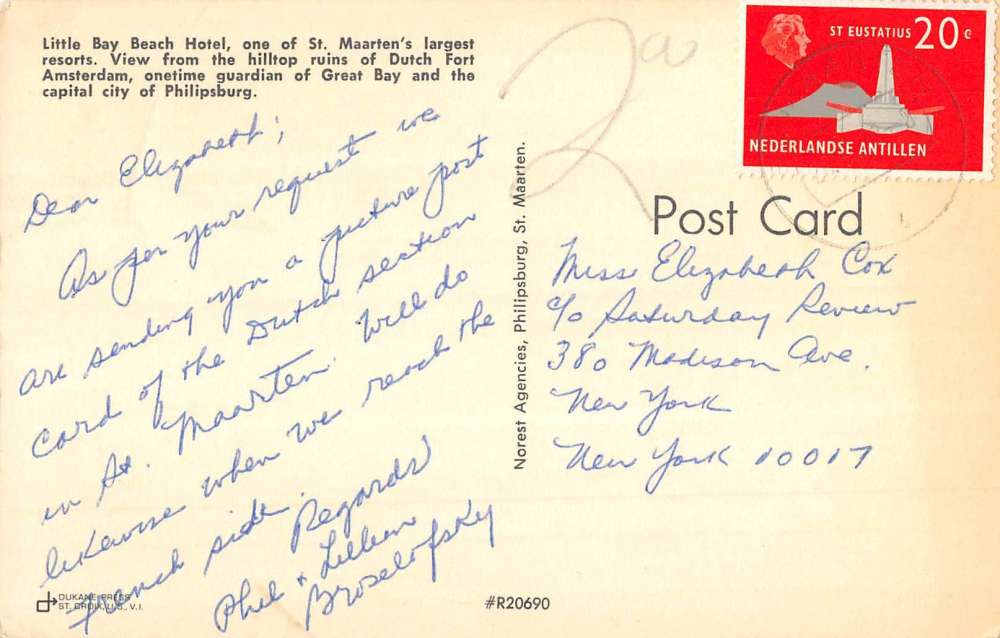 Little Bay Beach Hotel, one of St. Maarten's largest
resorts. View from the hilltop ruins of Dutch Fort
Amsterdam, onetime guardian of Great Bay and the
capital city of Philipsburg.
Dear Elizabeth;
As per your request we
are sending you a picture post
card of the Dutch section
in St. Maarten. Will do
likewise when we reach the
French side.
Regards
Phil + Lillian
Broselofsky
DUKANE PRESS
ST. CROIX, U.S., V.I.
#R20690
Norest Agencies, Philipsburg, St. Maarten.
200
ST EUSTATIUS 20 c
NEDERLANDSE ANTILLEN
Post Card
Miss Elizabeth Cox
c/o Saturday Review
380 Madison Ave.
New York
New York 10017